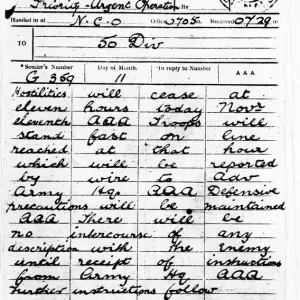 Priority-Urgent Operation By
Handed in at N.C.O Office 0705. Received 0729
TO 50 Div
Sender's Number Day of Month In reply to Number AAA
G 360 11
Hostilities will cease at
eleven hours today Novr
eleventh AAA Troops will
stand fast on line
reached at that hour
which will be reported
by wire to Adv
Army Hq. AAA Defensive
precautions will be maintained
AAA There will be
no intercourse of any
description with the Enemy
until receipt of instructions
from Army Hq AAA
Further instructions follow